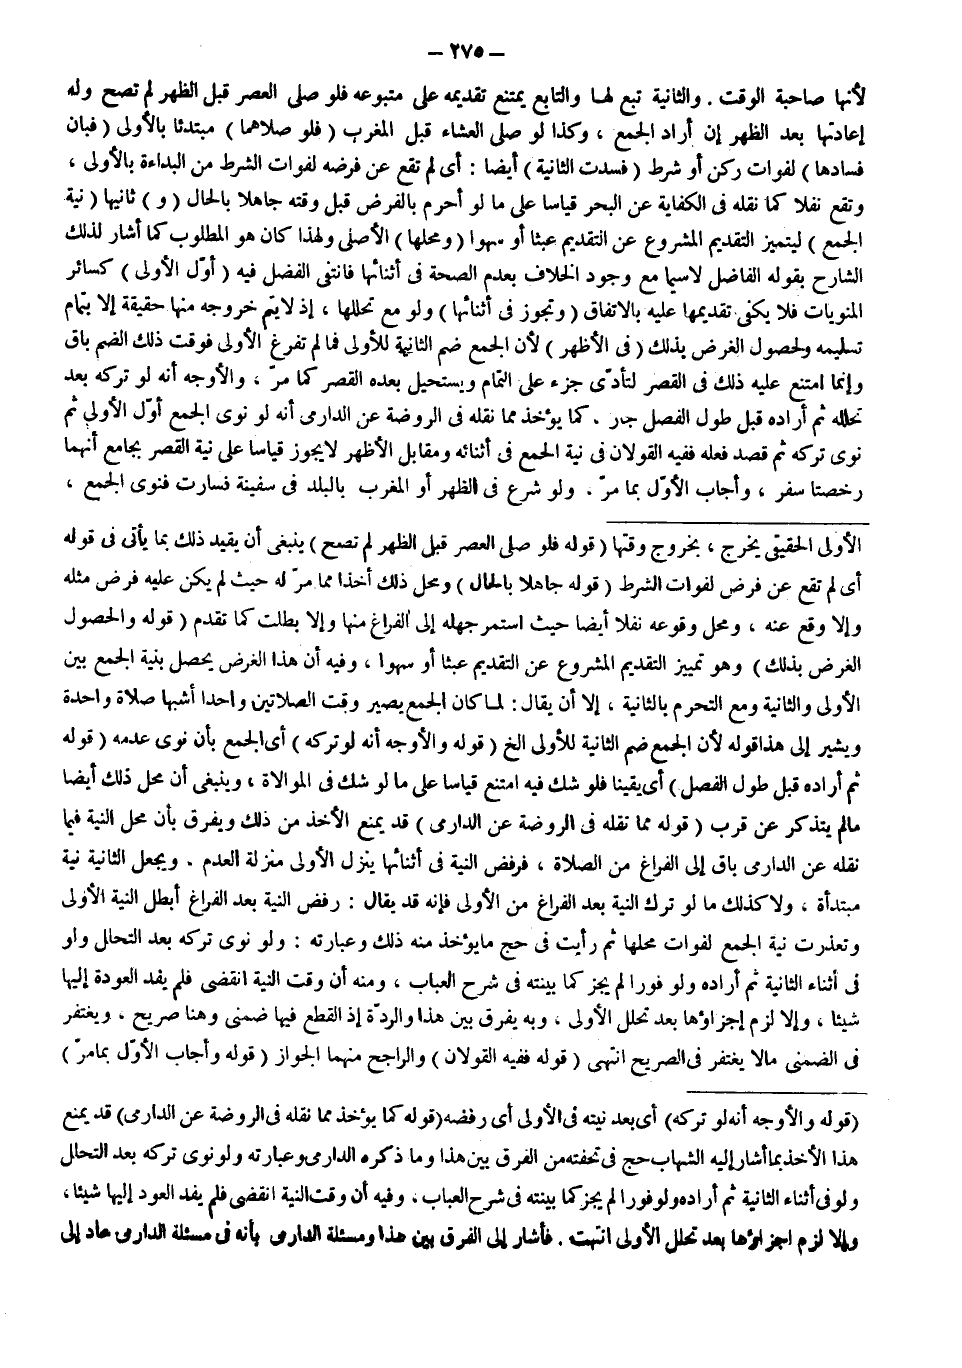 — ٢٧٥ —
لأنها صاحبة الوقت . والثانية تبع لها والتابع يمتنع تقديمه على متبوعه فلو صلى العصر قبل الظهر لم تصح وله
إعادتها بعد الظهر إن أراد الجمع ، وكذا لو صلى العشاء قبل المغرب ( فلو صلاهما ) مبتدئا بالأولى ( فبان
فسادها ) لفوات ركن أو شرط ( فسدت الثانية ) أيضا : أى لم تقع عن فرضه لفوات الشرط من البداءة بالأولى ،
وتقع نفلا كما نقله فى الكفاية عن البحر قياسا على ما لو أحرم بالفرض قبل وقته جاهلا بالحال ( و ) ثانيها ( نية
الجمع ) ليتميز التقديم المشروع عن التقديم عبثا أو سهوا ( ومحلها ) الأصلى ولهذا كان هو المطلوب كما أشار لذلك
الشارح بقوله الفاضل لاسيما مع وجود الخلاف بعدم الصحة فى أثنائها فانتفى الفضل فيه ( أوّل الأولى ) كسائر
المنويات فلا يكفى تقديمها عليه بالاتفاق ( وتجوز فى أثنائها ) ولو مع تحللها ، إذ لايتم خروجه منها حقيقة إلا بتمام
تسليمه ولحصول الغرض بذلك ( فى الأظهر ) لأن الجمع ضم الثانية للأولى فما لم تفرغ الأولى فوقت ذلك الضم باق
وإنما امتنع عليه ذلك فى القصر لتأدّى جزء على التمام ويستحيل بعده القصر كما مرّ ، والأوجه أنه لو تركه بعد
تحلله ثم أراده قبل طول الفصل جاز . كما يؤخذ مما نقله فى الروضة عن الدارمى أنه لو نوى الجمع أوّل الأولى ثم
نوى تركه ثم قصد فعله ففيه القولان فى نية الجمع فى أثنائه ومقابل الأظهر لايجوز قياسا على نية القصر بجامع أنهما
رخصتا سفر ، وأجاب الأوّل بما مرّ . ولو شرع فى الظهر أو المغرب بالبلد فى سفينة فسارت فنوى الجمع ،
الأولى الحقيقى يخرج ، بخروج وقتها ( قوله فلو صلى العصر قبل الظهر لم تصح ) ينبغى أن يقيد ذلك بما يأتى فى قوله
أى لم تقع عن فرض لفوات الشرط ( قوله جاهلا بالحال ) ومحل ذلك أخذا مما مرّ له حيث لم يكن عليه فرض مثله
وإلا وقع عنه ، ومحل وقوعه نفلا أيضا حيث استمر جهله إلى الفراغ منها وإلا بطلت كما تقدم ( قوله والحصول
الغرض بذلك ) وهو تمييز التقديم المشروع عن التقديم عبثا أو سهوا ، وفيه أن هذا الغرض يحصل بنية الجمع بين
الأولى والثانية ومع التحرم بالثانية ، إلا أن يقال : لما كان الجمع يصير وقت الصلاتين واحدا أشبها صلاة واحدة
ويشير إلى هذاقوله لأن الجمع ضم الثانية للأولى الخ ( قوله والأوجه أنه لوتركه ) أى الجمع بأن نوى عدمه ( قوله
ثم أراده قبل طول الفصل ) أى يقينا فلو شك فيه امتنع قياسا على ما لو شك فى الموالاة ، وينبغى أن محل ذلك أيضا
مالم يتذكر عن قرب ( قوله مما نقله فى الروضة عن الدارمى ) قد يمنع الأخذ من ذلك ويفرق بأن محل النية فيما
نقله عن الدارمى باق إلى الفراغ من الصلاة ، فرفض النية فى أثنائها ينزل الأولى منزلة العدم . ويجعل الثانية نية
مبتدأة ، ولاكذلك ما لو ترك النية بعد الفراغ من الأولى فإنه قد يقال : رفض النية بعد الفراغ أبطل النية الأولى
وتعذرت نية الجمع لفوات محلها ثم رأيت فى حج مايؤخذ منه ذلك وعبارته : ولو نوى تركه بعد التحلل ولو
فى أثناء الثانية ثم أراده ولو فورا لم يجز كما بينته فى شرح العباب ، ومنه أن وقت النية انقضى فلم يفد العودة إليها
شيئا ، وإلا لزم إجزاؤها بعد تحلل الأولى ، وبه يفرق بين هذا والردّة إذ القطع فيها ضمنى وهنا صريح ، ويغتفر
فى الضمنى مالا يغتفر فى الصريح انتهى ( قوله ففيه القولان ) والراجح منهما الجواز ( قوله وأجاب الأوّل بمامرّ )
(قوله والأوجه أنه لو تركه) أى بعد نيته فى الأولى أى رفضه(قوله كما يؤخذ مما نقله فى الروضة عن الدارمى) قد يمنع
هذا الأخذ بما أشار إليه الشهاب حج فى تحفته من الفرق بين هذا وما ذكره الدارمى وعبارته ولو نوى تركه بعد التحلل
ولو فى أثناء الثانية ثم أراده ولو فورا لم يجز كما بينته فى شرح العباب ، وفيه أن وقت النية انقضى فلم يفد العود إليها شيئا ،
وإلا لزم اجزاؤها بعد تحلل الأولى انتهت . فأشار إلى الفرق بين هذا ومسئلة الدارمى بأنه فى مسئلة الدارمى عاد إلى